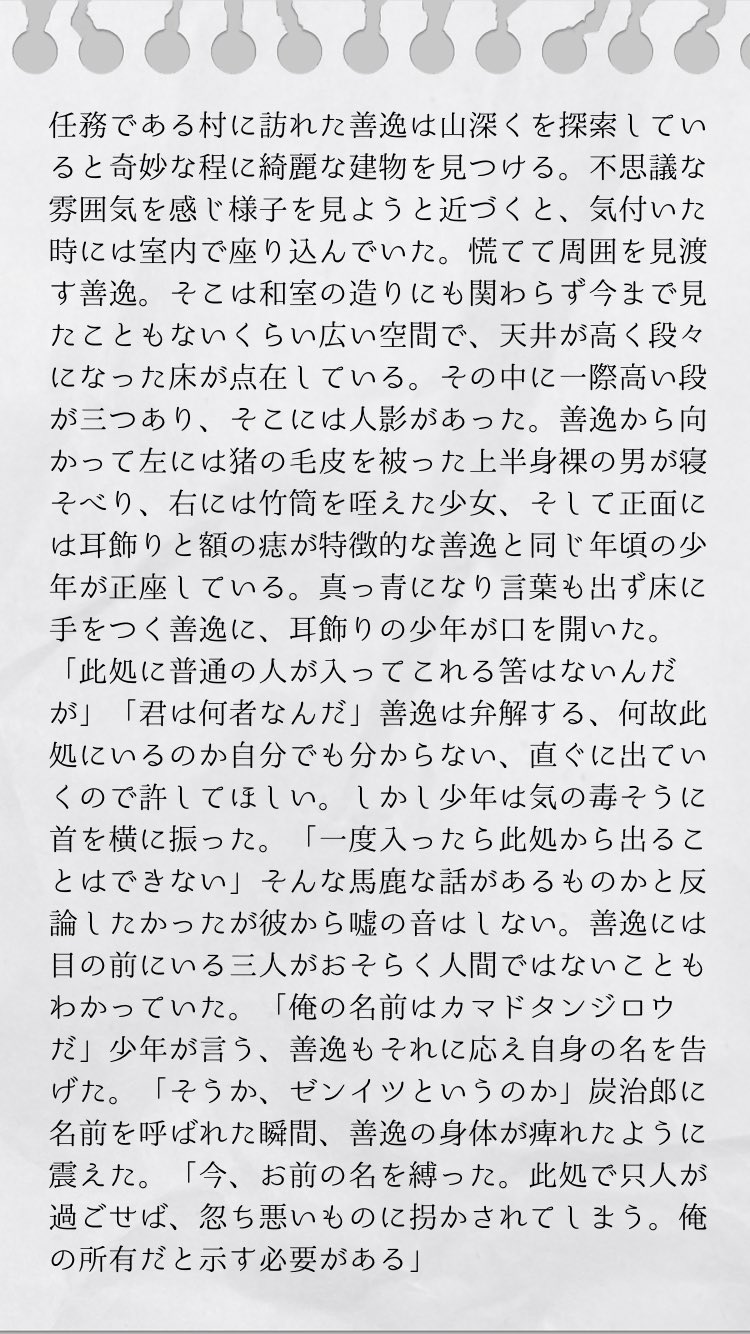 任務である村に訪れた善逸は山深くを探索してい
ると奇妙な程に綺麗な建物を見つける。不思議な
雰囲気を感じ様子を見ようと近づくと、気付いた
時には室内で座り込んでいた。慌てて周囲を見渡
す善逸。そこは和室の造りにも関わらず今まで見
たこともないくらい広い空間で、天井が高く段々
になった床が点在している。その中に一際高い段
が三つあり、そこには人影があった。善逸から向
かって左には猪の毛皮を被った上半身裸の男が寝
そべり、右には竹筒を咥えた少女、そして正面に
は耳飾りと額の痣が特徴的な善逸と同じ年頃の少
年が正座している。真っ青になり言葉も出ず床に
手をつく善逸に、耳飾りの少年が口を開いた。
「此処に普通の人が入ってこれる筈はないんだ
が」「君は何者なんだ」善逸は弁解する、何故此
処にいるのか自分でも分からない、直ぐに出てい
くので許してほしい。しかし少年は気の毒そうに
首を横に振った。「一度入ったら此処から出るこ
とはできない」そんな馬鹿な話があるものかと反
論したかったが彼から嘘の音はしない。善逸には
目の前にいる三人がおそらく人間ではないことも
わかっていた。「俺の名前はカマドタンジロウ
だ」少年が言う、善逸もそれに応え自身の名を告
げた。「そうか、ゼンイツというのか」炭治郎に
名前を呼ばれた瞬間、善逸の身体が痺れたように
震えた。「今、お前の名を縛った。此処で只人が
過ごせば、忽ち悪いものに拐かされてしまう。俺
の所有だと示す必要がある」